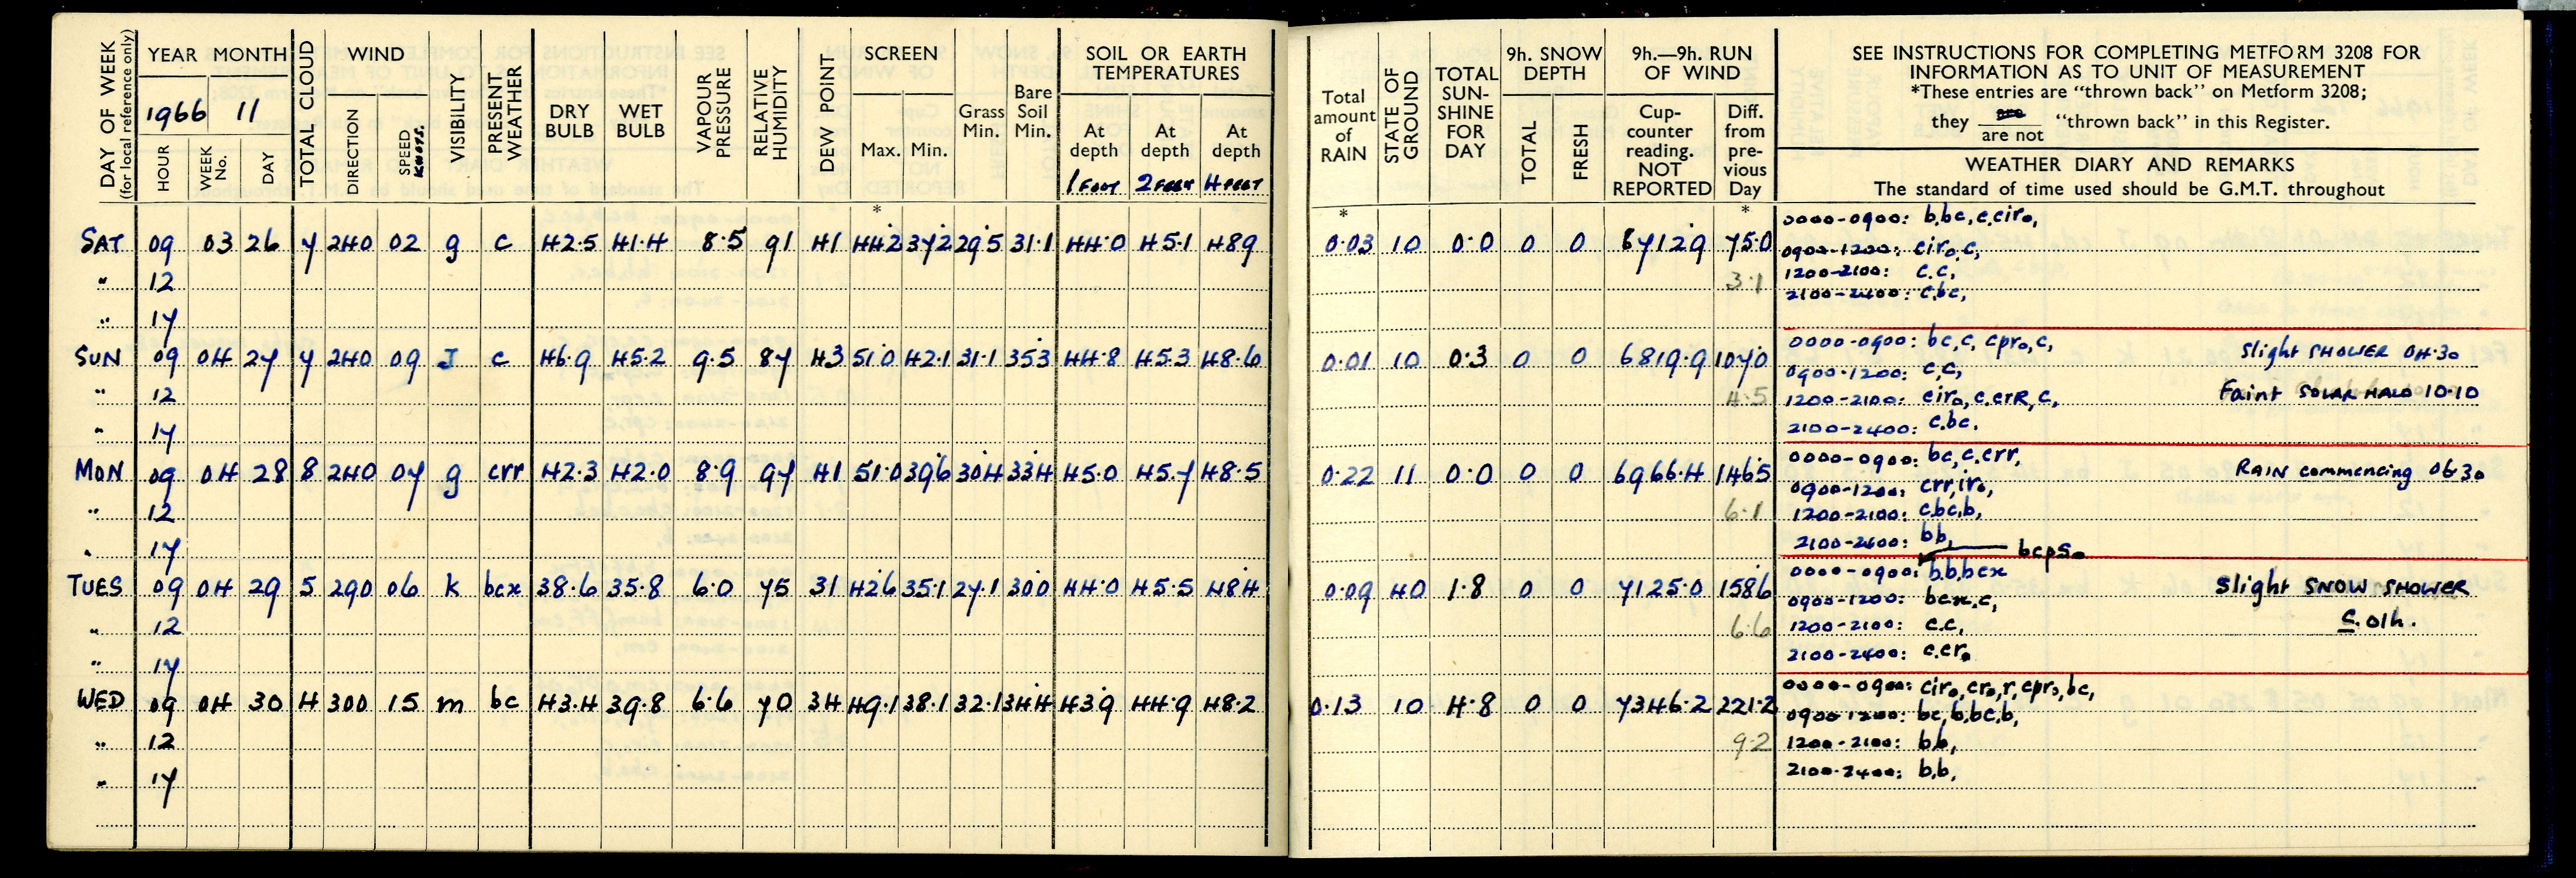 DAY OF WEEK (for local reference only) YEAR MONTH TOTAL CLOUD WIND VISIBILITY PRESENT WEATHER DRY BULB WET BULB VAPOUR PRESSURE RELATIVE HUMIDITY DEW POINT SCREEN Grass Min. Bare Soil Min. SOIL OR EARTH TEMPERATURES
1966 11
HOUR WEEK No. DAY DIRECTION SPEED KNOTS. Max. Min. At depth At depth At depth
1 FOOT 2 FEET 4 FEET
Total amount of RAIN STATE OF GROUND TOTAL SUN-SHINE FOR DAY 9h. SNOW DEPTH 9h.—9h. RUN OF WIND
TOTAL FRESH Cup-counter reading. NOT REPORTED Diff. from pre-vious Day
SEE INSTRUCTIONS FOR COMPLETING METFORM 3208 FOR
INFORMATION AS TO UNIT OF MEASUREMENT
*These entries are "thrown back" on Metform 3208;
they are / are not "thrown back" in this Register.
WEATHER DIARY AND REMARKS
The standard of time used should be G.M.T. throughout
* * *
SAT 09 03 26 7 240 02 g c 42.5 41.4 8.5 91 41 44.2 37.2 29.5 31.1 44.0 45.1 48.9 0.03 10 0.0 0 0 6712.9 75.0 0000-0900: b,bc,c,cir₀,
0900-1200: cir₀,c,
" 12 3.1 1200-2100: c.c,
2100-2400: c,bc,
" 17
SUN 09 04 27 7 240 09 J c 46.9 45.2 9.5 87 43 51.0 42.1 31.1 35.3 44.8 45.3 48.6 0.01 10 0.3 0 0 6819.9 107.0 0000-0900: bc,c, cpr₀,c, Slight SHOWER 04.30
0900-1200: c,c,
" 12 4.5 1200-2100: cir₀,c,crR,c, Faint SOLAR HALO 10.10
" 17 2100-2400: c.bc.
MON 09 04 28 8 240 07 g crr 42.3 42.0 8.9 97 41 51.0 39.6 30.4 33.4 45.0 45.7 48.5 0.22 11 0.0 0 0 6966.4 146.5 0000-0900: bc,c.crr, RAIN commencing 06.30
0900-1200: crr,ir₀,
" 12 6.1 1200-2100: c,bc,b,
" 17 2100-2400: b,b,
bcps₀
TUES 09 04 29 5 290 06 k bcx 38.6 35.8 6.0 75 31 42.6 35.1 27.1 30.0 44.0 45.5 48.4 0.09 40 1.8 0 0 7125.0 158.6 0000-0900: b.b.bcx Slight SNOW SHOWER
0900-1200: bcx.c,
" 12 6.6 1200-2100: c.c, c. 01h.
" 17 2100-2400: c.cr₀
WED 09 04 30 4 300 15 m bc 43.4 39.8 6.6 70 34 49.1 38.1 32.1 34.4 43.9 44.9 48.2 0.13 10 4.8 0 0 7346.2 221.2 0000-0900: cir₀,cr₀,r,cpr₀,bc,
0900-1200: bc,b,bc,b,
" 12 9.2 1200-2100: b.b,
" 17 2100-2400: b,b,